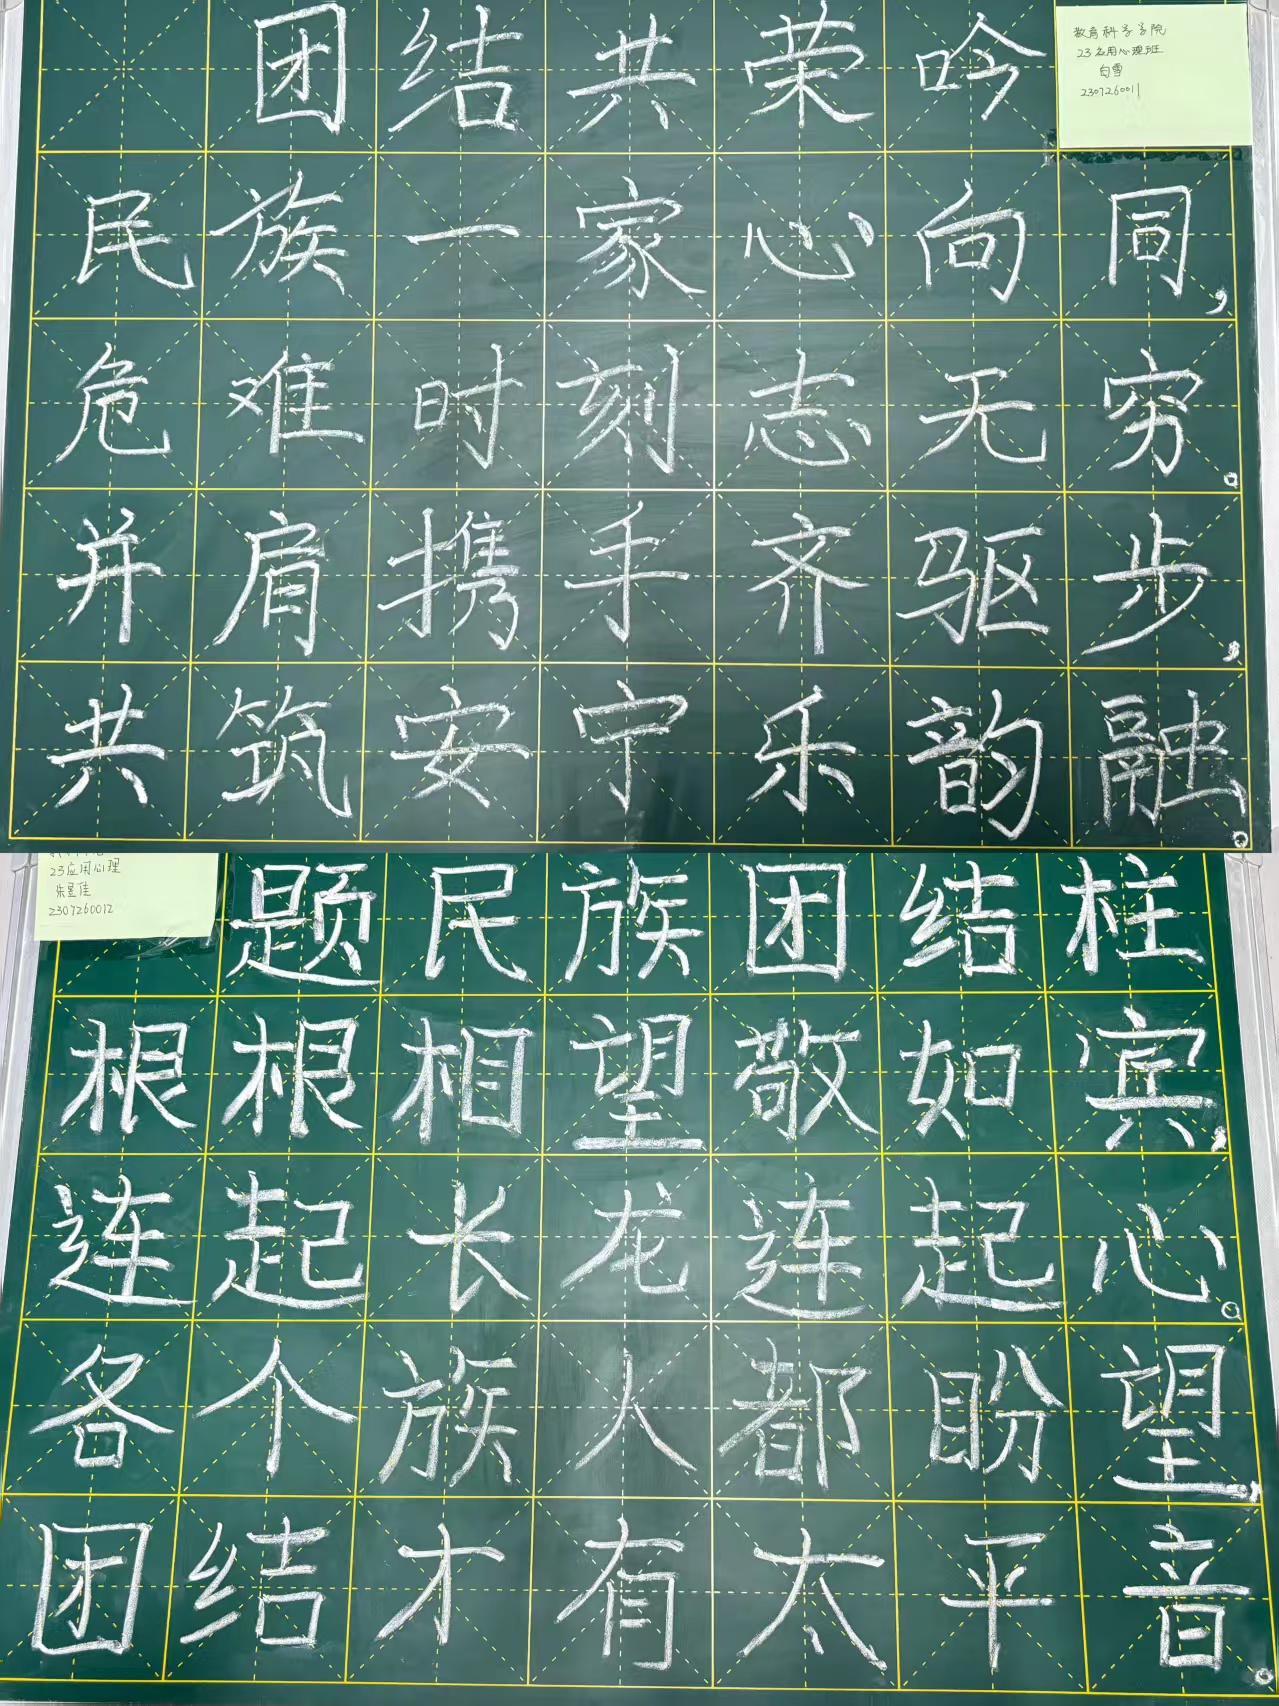 团结共荣吟
教育科学学院
23应用心理班
白雪
2307260011
民族一家心向同，
危难时刻志无穷。
并肩携手齐驱步，
共筑安宁乐韵融。
23应用心理
朱星佳
2307260012
题民族团结柱
根根相望敬如宾，
连起长龙连起心。
各个族人都盼望，
团结才有太平音。